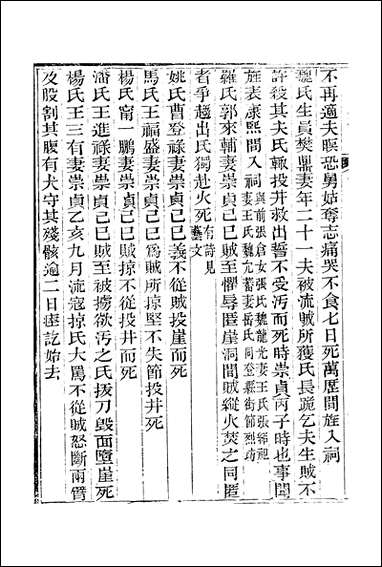 不再適夫暝恐舅姑奪志痛哭不食七日死萬歷間旌入祠
龐氏生員樊鼎妻年二十一夫被流賊所獲氏長跪乞夫生賊不
許殺其夫氏輒投井救出誓不受污而死時崇貞丙子時也事聞
旌表康熙間入祠與前張倉女張氏魏龍光妻王氏張铎祖
妻王氏魏亢蓄妻岳氏同登縣街節烈坊
羅氏郭來輔妻崇貞己巳賊至懼辱匿崖洞間賊縱火焚之同匿
者爭趨出氏獨赴火死有詩見
藝文
姚氏曹登祿妻崇貞己巳義不從賊投崖而死
馬氏王福盛妻崇貞己巳為賊所掠堅不失節投井死
楊氏甯一鵬妻崇貞己巳賊掠不從投井而死
潘氏王進祿妻崇貞己巳賊至被擄欲污之氏拔刀毀面墮崖死
楊氏王三有妻崇貞乙亥九月流寇掠氏大罵不從賊怒斷兩臂
及股割其腹有犬守其殘骸逾二日瘞訖始去